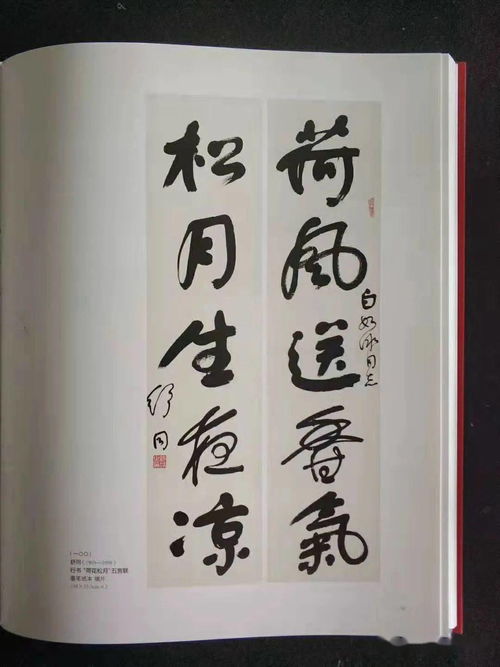 荷風送香氣
白如冰同志
松月生夜凉
舒同
(一〇〇)
舒同(1905—1998)
行书“荷花松月”五言联
纸本 镜片